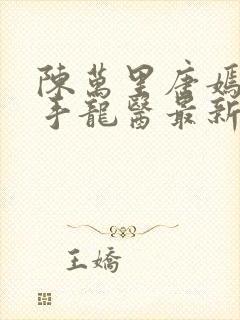 陳萬里唐嫣
手龍醫最新
王嬌